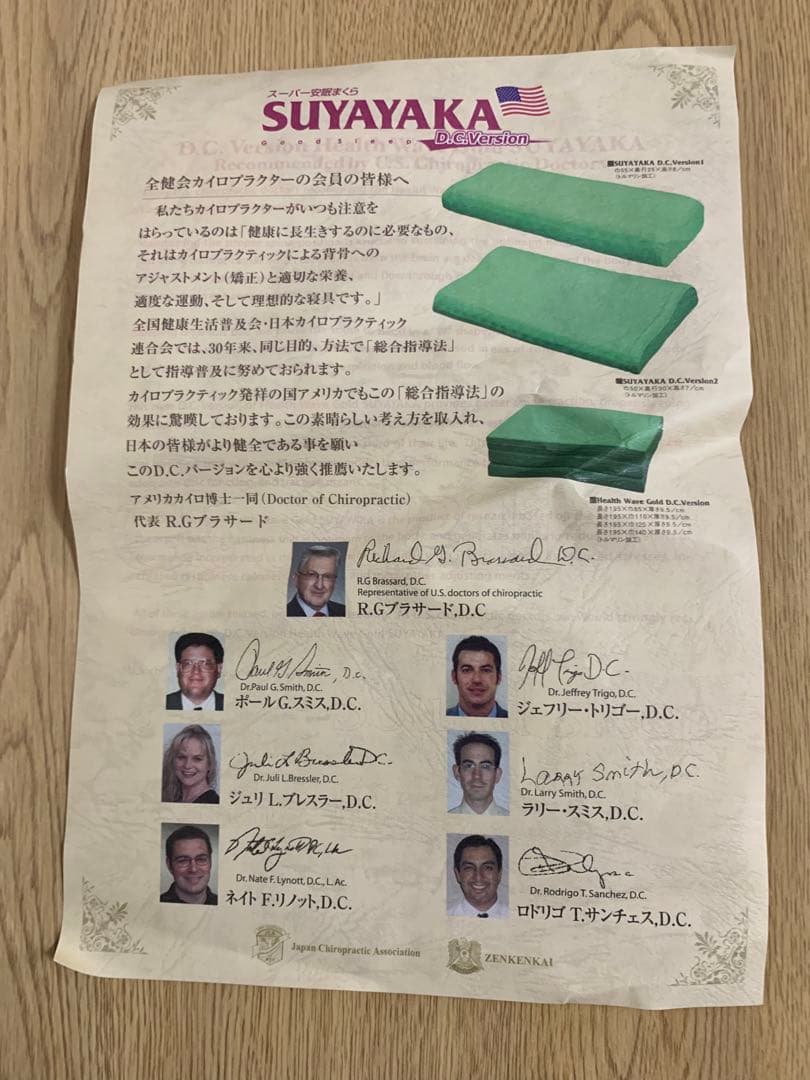 スーパー安眠まくら
SUYAYAKA
GoodSleep
D.C.Version
全健会カイロプラクターの会員の皆様へ
私たちカイロプラクターがいつも注意を
はらっているのは「健康に長生きするのに必要なもの、
それはカイロプラクティックによる背骨への
アジャストメント(矯正)と適切な栄養、
適度な運動、そして理想的な寝具です。」
全国健康生活普及会・日本カイロプラクティック
連合会では、30年来、同じ目的、方法で「総合指導法」
として指導普及に努めておられます。
カイロプラクティック発祥の国アメリカでもこの「総合指導法」の
効果に驚嘆しております。この素晴らしい考え方を取入れ、
日本の皆様がより健全である事を願い
このD.C.バージョンを心より強く推薦いたします。
アメリカカイロ博士一同(Doctor of Chiropractic)
代表 R.Gブラサード
■SUYAYAKA D.C.Version1
(トルマリン加工)
■SUYAYAKA D.C.Version2
(トルマリン加工)
■Health Wave Gold D.C.Version
(トルマリン加工)
Richard G. Brassard D.C.
R.G Brassard, D.C.
Representative of U.S. doctors of chiropractic
R.Gブラサード,D.C
Paul G Smith, D.C.
Dr.Paul G. Smith, D.C.
ポール G.スミス,D.C.
Jeff Trigo D.C.
Dr. Jeffrey Trigo, D.C.
ジェフリー・トリゴー,D.C.
Juli L Bressler D.C.
Dr. Juli L.Bressler, D.C.
ジュリ L.ブレスラー,D.C.
Larry Smith, D.C.
Dr. Larry Smith, D.C.
ラリー・スミス,D.C.
Dr. Nate F. Lynott, D.C., L. Ac.
ネイト F.リノット,D.C.
Dr. Rodrigo T. Sanchez, D.C.
ロドリゴ T.サンチェス,D.C.
Japan Chiropractic Association
ZENKENKAI